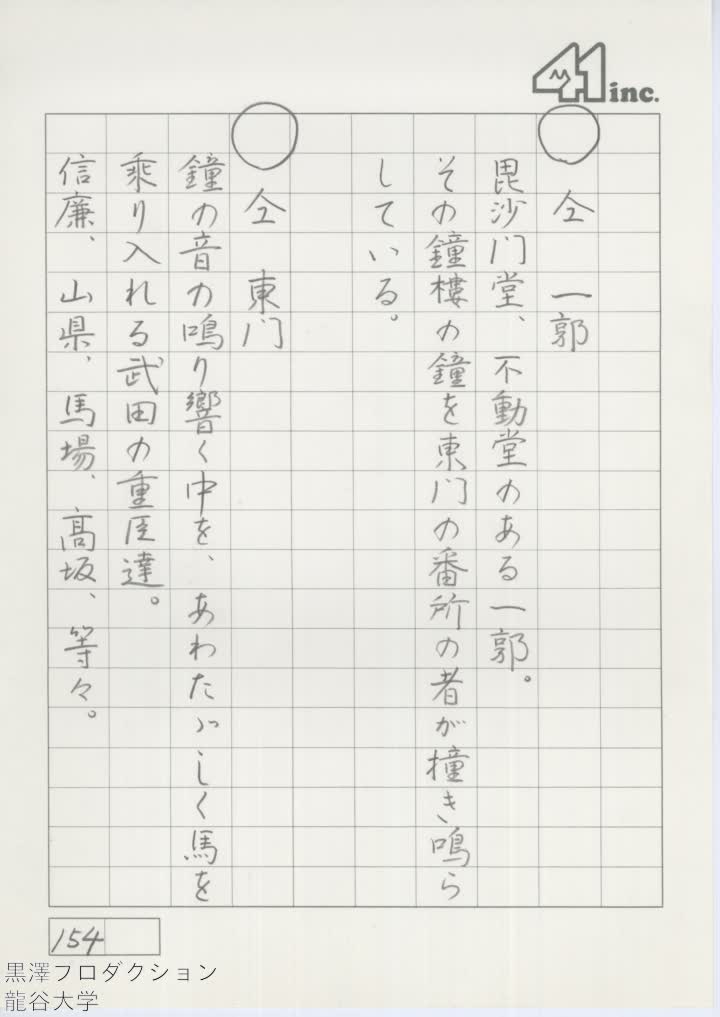 41 inc.
○ 仝 一郭
毘沙门堂、不動堂のある一郭。
その鐘樓の鐘を東门の番所の者が撞き鳴ら
している。
○ 仝 東门
鐘の音の鳴り響く中を、あわたゞしく馬を
乗り入れる武田の重臣達。
信廉、山県、馬場、高坂、等々。
154
黒澤プロダクション
龍谷大学